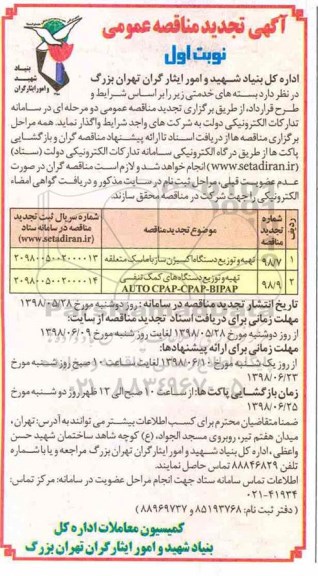 آگهی تجدید مناقصه عمومی
نوبت اول
بنیاد
شهید
و امور ایثارگران
اداره کل بنیاد شهید و امور ایثارگران تهران بزرگ
در نظر دارد بسته های خدمتی زیر را بر اساس شرایط و
طرح قرارداد، از طریق برگزاری تجدید مناقصه عمومی دو مرحله ای در سامانه
تدارکات الکترونیکی دولت به شرکت های واجد شرایط واگذار نماید. همه مراحل
برگزاری مناقصه ها از دریافت اسناد تا ارائه پیشنهاد مناقصه گران و بازگشایی
پاکت ها از طریق درگاه الکترونیکی سامانه تدارکات الکترونیکی دولت (ستاد)
(www.setadiran.ir) انجام خواهد شد و لازم است مناقصه گران در صورت
عدم عضویت قبلی مراحل ثبت نام در سایت مذکور و دریافت گواهی امضاء
الکترونیکی را جهت شرکت در مناقصه محقق سازند.
ردیف | شماره تجدید مناقصه | موضوع تجدید مناقصه | شماره سریال ثبت تجدید مناقصه در سامانه ستاد (www.setadiran.ir)
۱ | ۹۸/۷ | تهیه و توزیع دستگاه اکسیژن ساز با ماسک متعلقه | ۲۰۹۸۰۰۵۰۰۲۰۰۰۰۱۳
۲ | ۹۸/۹ | تهیه و توزیع دستگاه های کمک تنفسی AUTO CPAP-CPAP-BIPAP | ۲۰۹۸۰۰۵۰۰۲۰۰۰۰۱۴
تاریخ انتشار تجدید مناقصه در سامانه: روز دوشنبه مورخ ۱۳۹۸/۰۵/۲۸
مهلت زمانی برای دریافت اسناد تجدید مناقصه از سایت:
از روز دوشنبه مورخ ۱۳۹۸/۰۵/۲۸ لغایت روز شنبه مورخ ۱۳۹۸/۰۶/۰۹
مهلت زمانی برای ارائه پیشنهادها:
از روز یک شنبه مورخ ۱۳۹۸/۰۶/۱۰ لغایت ساعت ۱۰ صبح روز شنبه مورخ
۱۳۹۸/۰۶/۲۳
زمان بازگشایی پاکت ها: از ساعت ۱۰ صبح الی ۱۲ ظهر روز دوشنبه مورخ
۱۳۹۸/۰۶/۲۵
ضمنا متقاضیان محترم برای کسب اطلاعات بیشتر می توانند به آدرس: تهران،
میدان هفتم تیر، روبروی مسجد الجواد، (ع) کوچه شاهد ساختمان شهید حسن
واعظی، اداره کل بنیاد شهید و امور ایثارگران تهران بزرگ مراجعه و یا با شماره
تلفن ۸۸۸۴۶۸۲۹ تماس حاصل نمایند.
اطلاعات تماس سامانه ستاد جهت انجام مراحل عضویت در سامانه: مرکز تماس:
۰۲۱-۴۱۹۳۴
( دفتر ثبت نام: ۸۵۱۹۳۷۶۸ و ۸۸۹۶۹۷۳۷ )
کمیسیون معاملات اداره کل
بنیاد شهید و امور ایثارگران تهران بزرگ